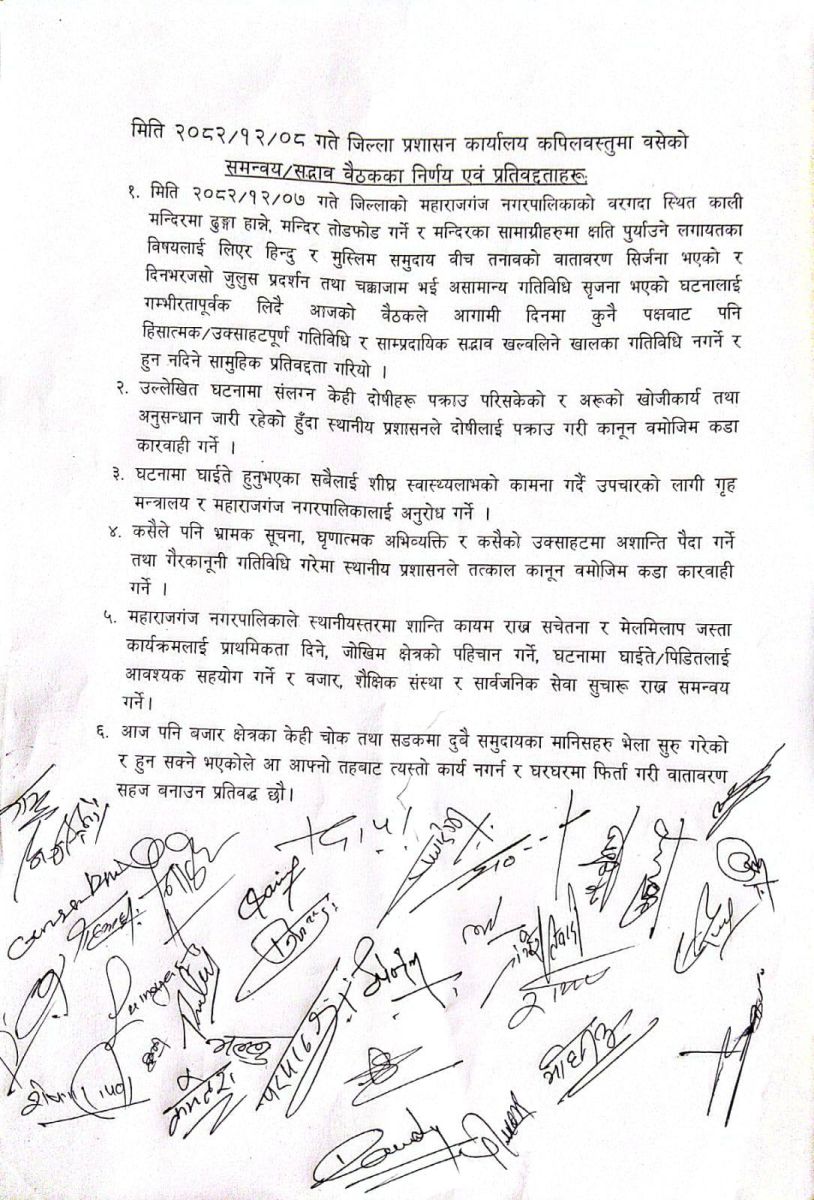 मिति २०८२/१२/०८ गते जिल्ला प्रशासन कार्यालय कपिलवस्तुमा वसेको
समन्वय/सद्भाव वैठकका निर्णय एवं प्रतिवद्दताहरू:
१. मिति २०८२/१२/०७ गते जिल्लाको महाराजगंज नगरपालिकाको वरगदा स्थित काली
मन्दिरमा ढुङ्गा हान्ने, मन्दिर तोडफोड गर्ने र मन्दिरका सामाग्रीहरुमा क्षति पुर्याउने लगायतका
विषयलाई लिएर हिन्दु र मुस्लिम समुदाय वीच तनावको वातावरण सिर्जना भएको र
दिनभरजसो जुलुस प्रदर्शन तथा चक्काजाम भई असामान्य गतिविधि सृजना भएको घटनालाई
गम्भीरतापूर्वक लिदै आजको वैठकले आगामी दिनमा कुनै पक्षवाट पनि
हिसात्मक/उक्साहटपूर्ण गतिविधि र साम्प्रदायिक सद्भाव खल्वलिने खालका गतिविधि नगर्ने र
हुन नदिने सामुहिक प्रतिवद्दता गरियो ।
२. उल्लेखित घटनामा संलग्न केही दोषीहरू पक्राउ परिसकेको र अरूको खोजीकार्य तथा
अनुसन्धान जारी रहेको हुँदा स्थानीय प्रशासनले दोषीलाई पक्राउ गरी कानून वमोजिम कडा
कारवाही गर्ने ।
३. घटनामा घाईते हुनुभएका सबैलाई शीघ्र स्वास्थ्यलाभको कामना गर्दै उपचारको लागी गृह
मन्त्रालय र महाराजगंज नगरपालिकालाई अनुरोध गर्ने ।
४. कसैले पनि भ्रामक सूचना, घृणात्मक अभिव्यक्ति र कसैको उक्साहटमा अशान्ति पैदा गर्ने
तथा गैरकानूनी गतिविधि गरेमा स्थानीय प्रशासनले तत्काल कानून वमोजिम कडा कारवाही
गर्ने ।
५. महाराजगंज नगरपालिकाले स्थानीयस्तरमा शान्ति कायम राख्न सचेतना र मेलमिलाप जस्ता
कार्यक्रमलाई प्राथमिकता दिने, जोखिम क्षेत्रको पहिचान गर्ने, घटनामा घाईते/पिडितलाई
आवश्यक सहयोग गर्ने र वजार, शैक्षिक संस्था र सार्वजनिक सेवा सुचारू राख्न समन्वय
गर्ने।
६. आज पनि बजार क्षेत्रका केही चोक तथा सडकमा दुवै समुदायका मानिसहरु भेला सुरु गरेको
र हुन सक्ने भएकोले आ आफ्नो तहबाट त्यस्तो कार्य नगर्न र घरघरमा फिर्ता गरी वातावरण
सहज बनाउन प्रतिवद्ध छौ।